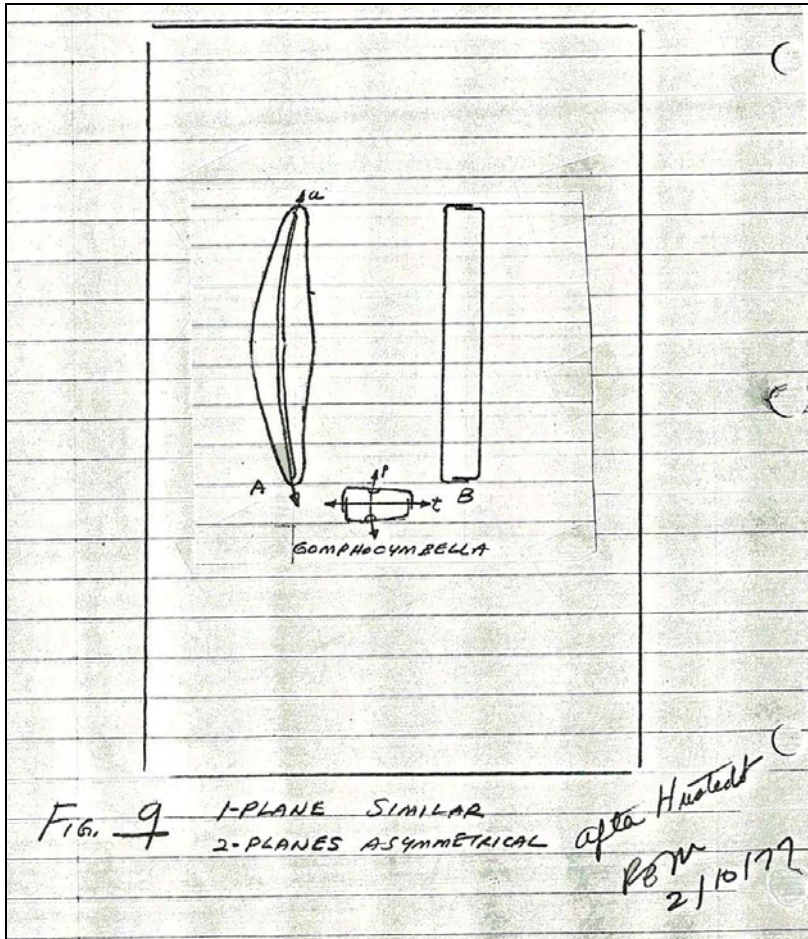 a
A
P
t
B
GOMPHOCYMBELLA
FIG. 9
1-PLANE SIMILAR
2-PLANES ASYMMETRICAL
after Hustedt
RBM
2/10/77